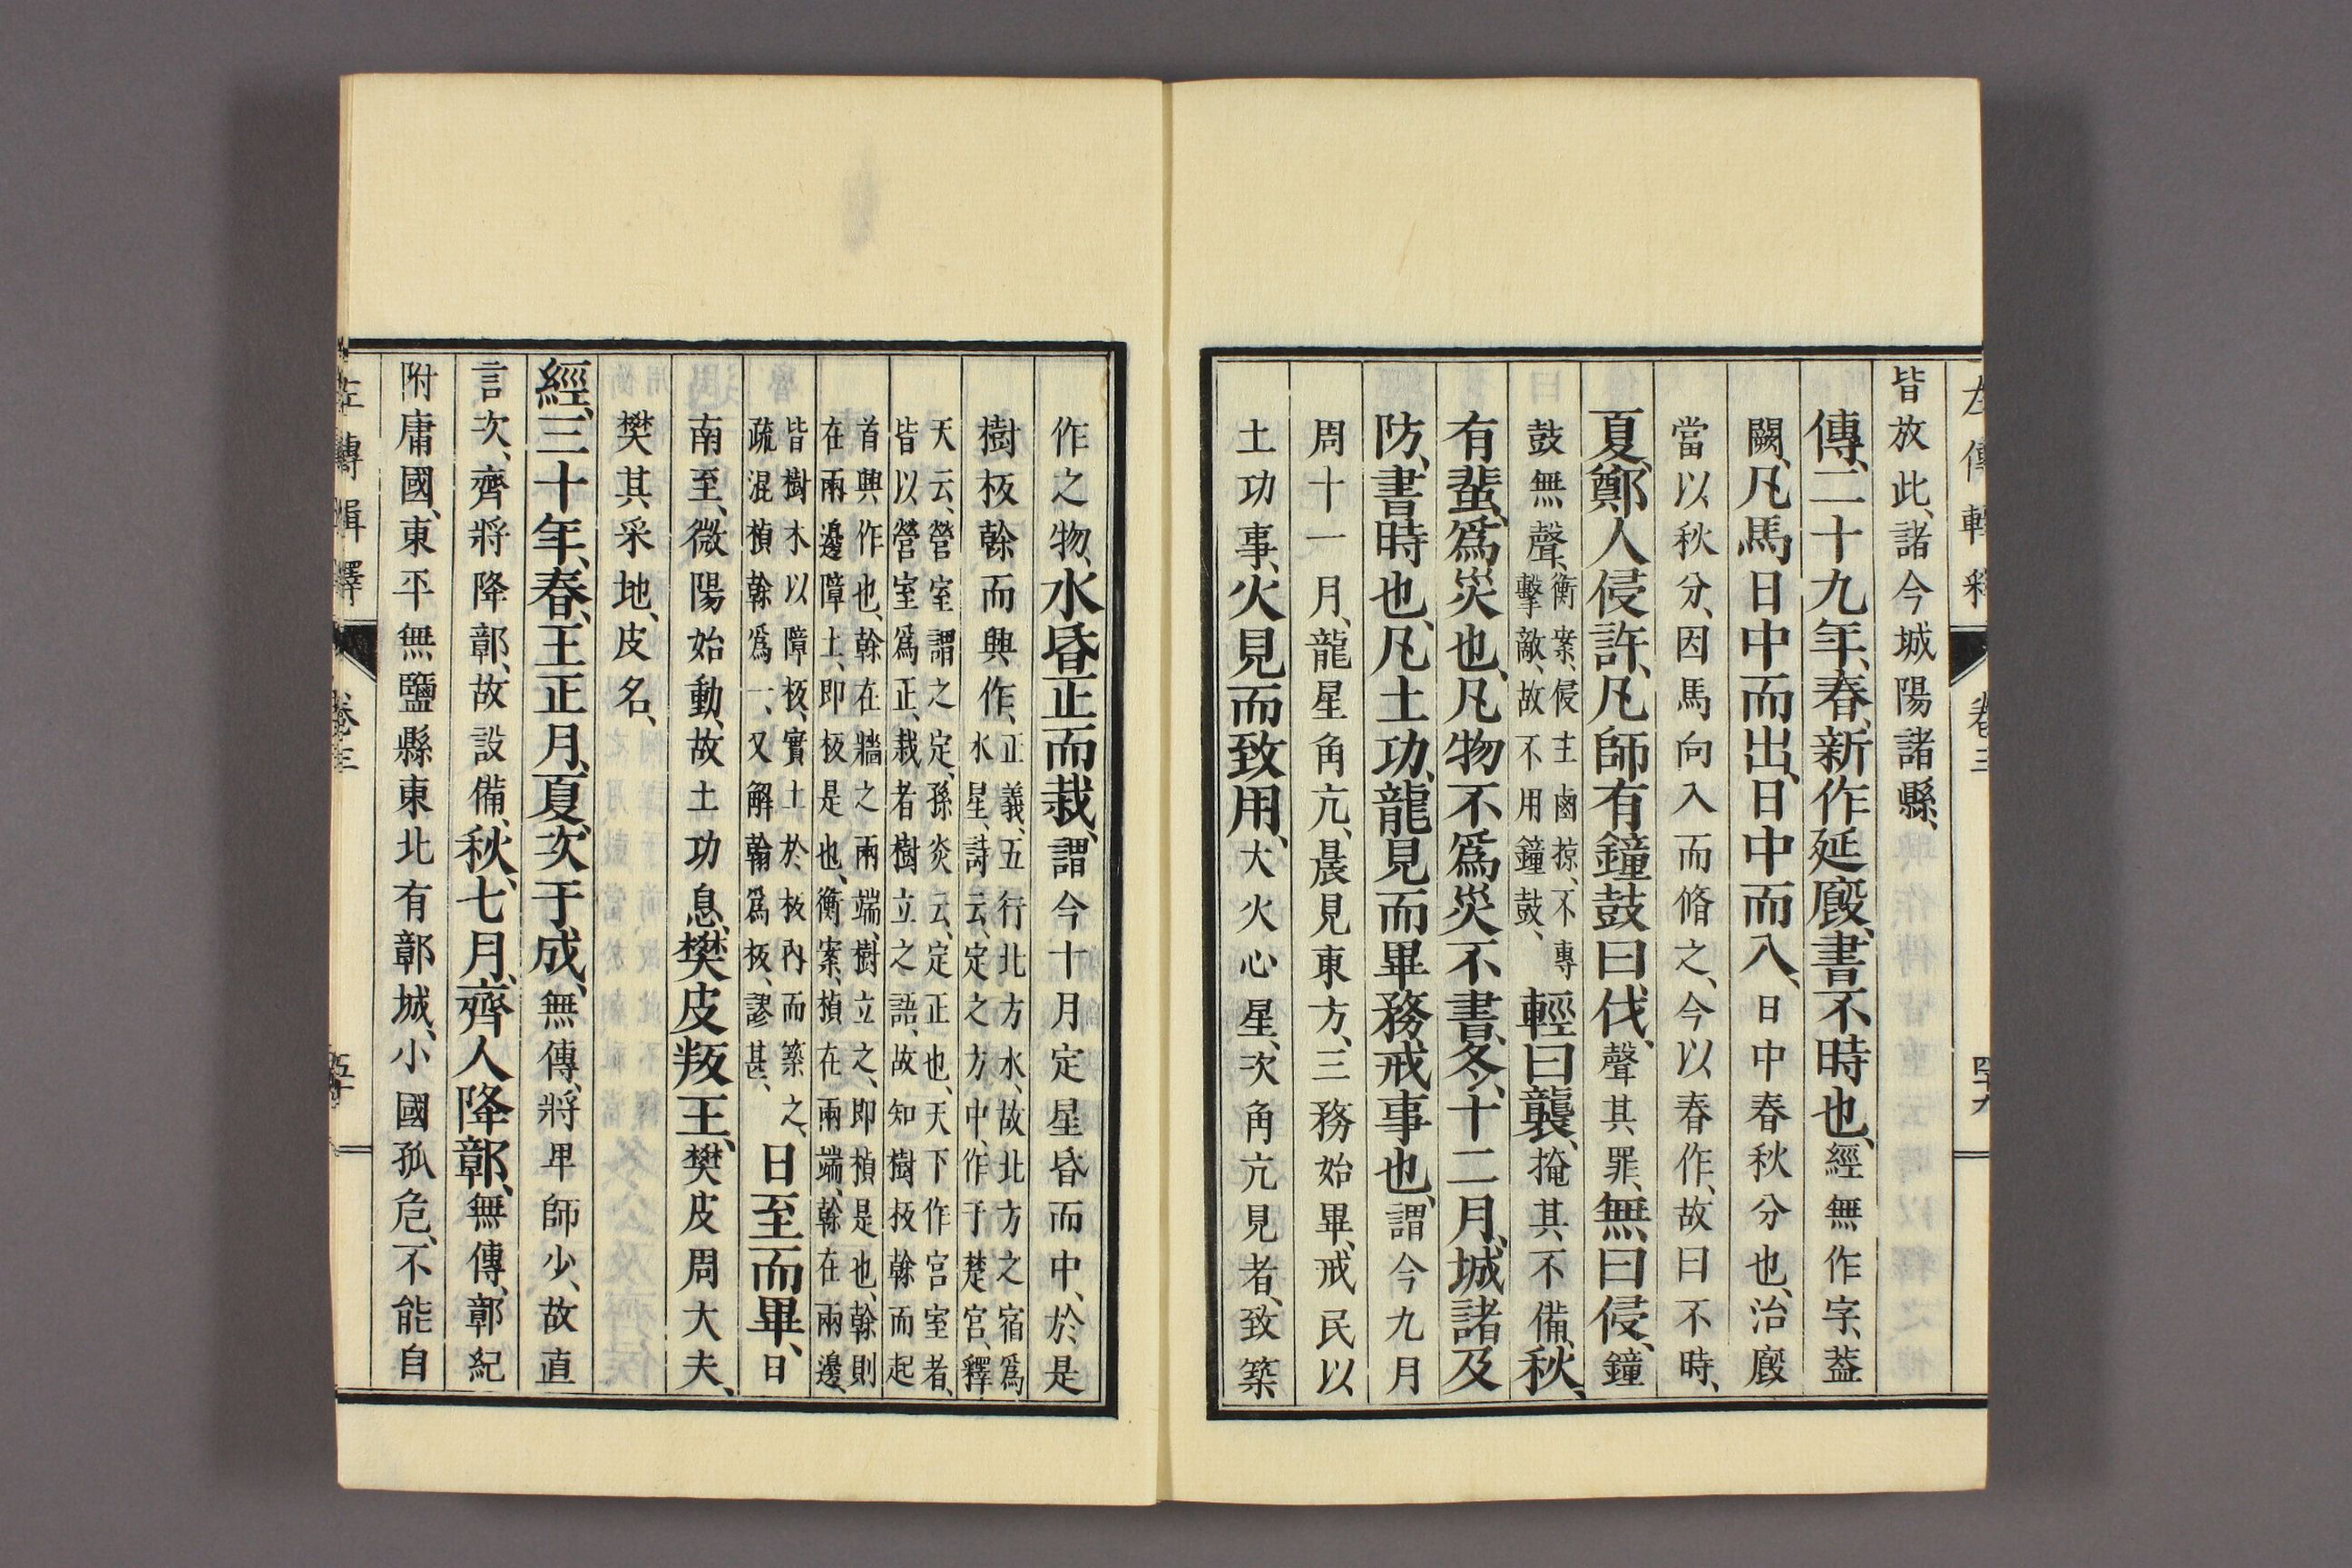 左傳輯釋 卷三 四十九
皆放此、諸今城陽諸縣、
傳、二十九年、春、新作延廄、書不時也、經無作字、葢
闕、凡馬日中而出、日中而入、日中春秋分也、治廄
當以秋分、因馬向入而脩之、今以春作、故曰不時、
夏、鄭人侵許、凡師有鐘鼓曰伐、聲其罪、無曰侵、鐘
鼓無聲、衡案、侵主鹵掠、不專擊敵、故不用鐘鼓、輕曰襲、掩其不備、秋、
有蜚、爲災也、凡物不爲災不書、冬、十二月、城諸及
防、書時也、凡土功、龍見而畢務、戒事也、謂今九月
周十一月、龍星角亢、晨見東方、三務始畢、戒民以
土功事、火見而致用、大火心星、次角亢見者、致築
作之物、水昏正而栽、謂今十月定星昏而中、於是
樹板榦而興作、正義、五行北方水、故北方之宿爲水星、詩云、定之方中、作于楚宮、釋
天云、營室謂之定、孫炎云、定正也、天下作宮室者、皆以營室爲正、栽者樹立之語、故知樹板榦而起
首興作也、榦在牆之兩端、樹立之、即楨是也、榦則在兩邊障土、即板是也、衡案、楨在兩端、榦在兩邊、
皆樹木以障板、實土於板內而築之、疏混楨榦爲一、又解榦爲板、謬甚、日至而畢、日
南至、微陽始動、故土功息、樊皮叛王、樊皮周大夫、
樊其采地、皮名、
經、三十年、春、王正月、夏、次于成、無傳、將卑師少、故直
言次、齊將降鄣、故設備、秋、七月、齊人降鄣、無傳、鄣紀
附庸國、東平無鹽縣東北有鄣城、小國孤危、不能自
左傳輯釋 卷三 五十